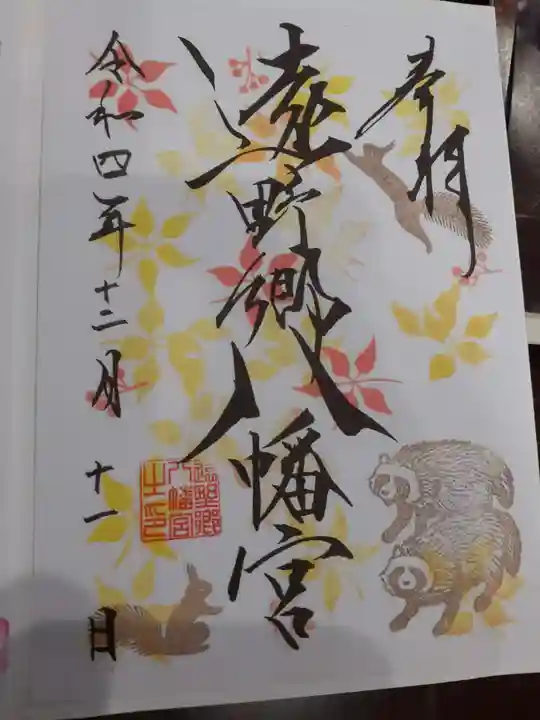 奉拝
遠野郷八幡宮
令和四年十二月十一日
遠野郷
八幡宮
之印